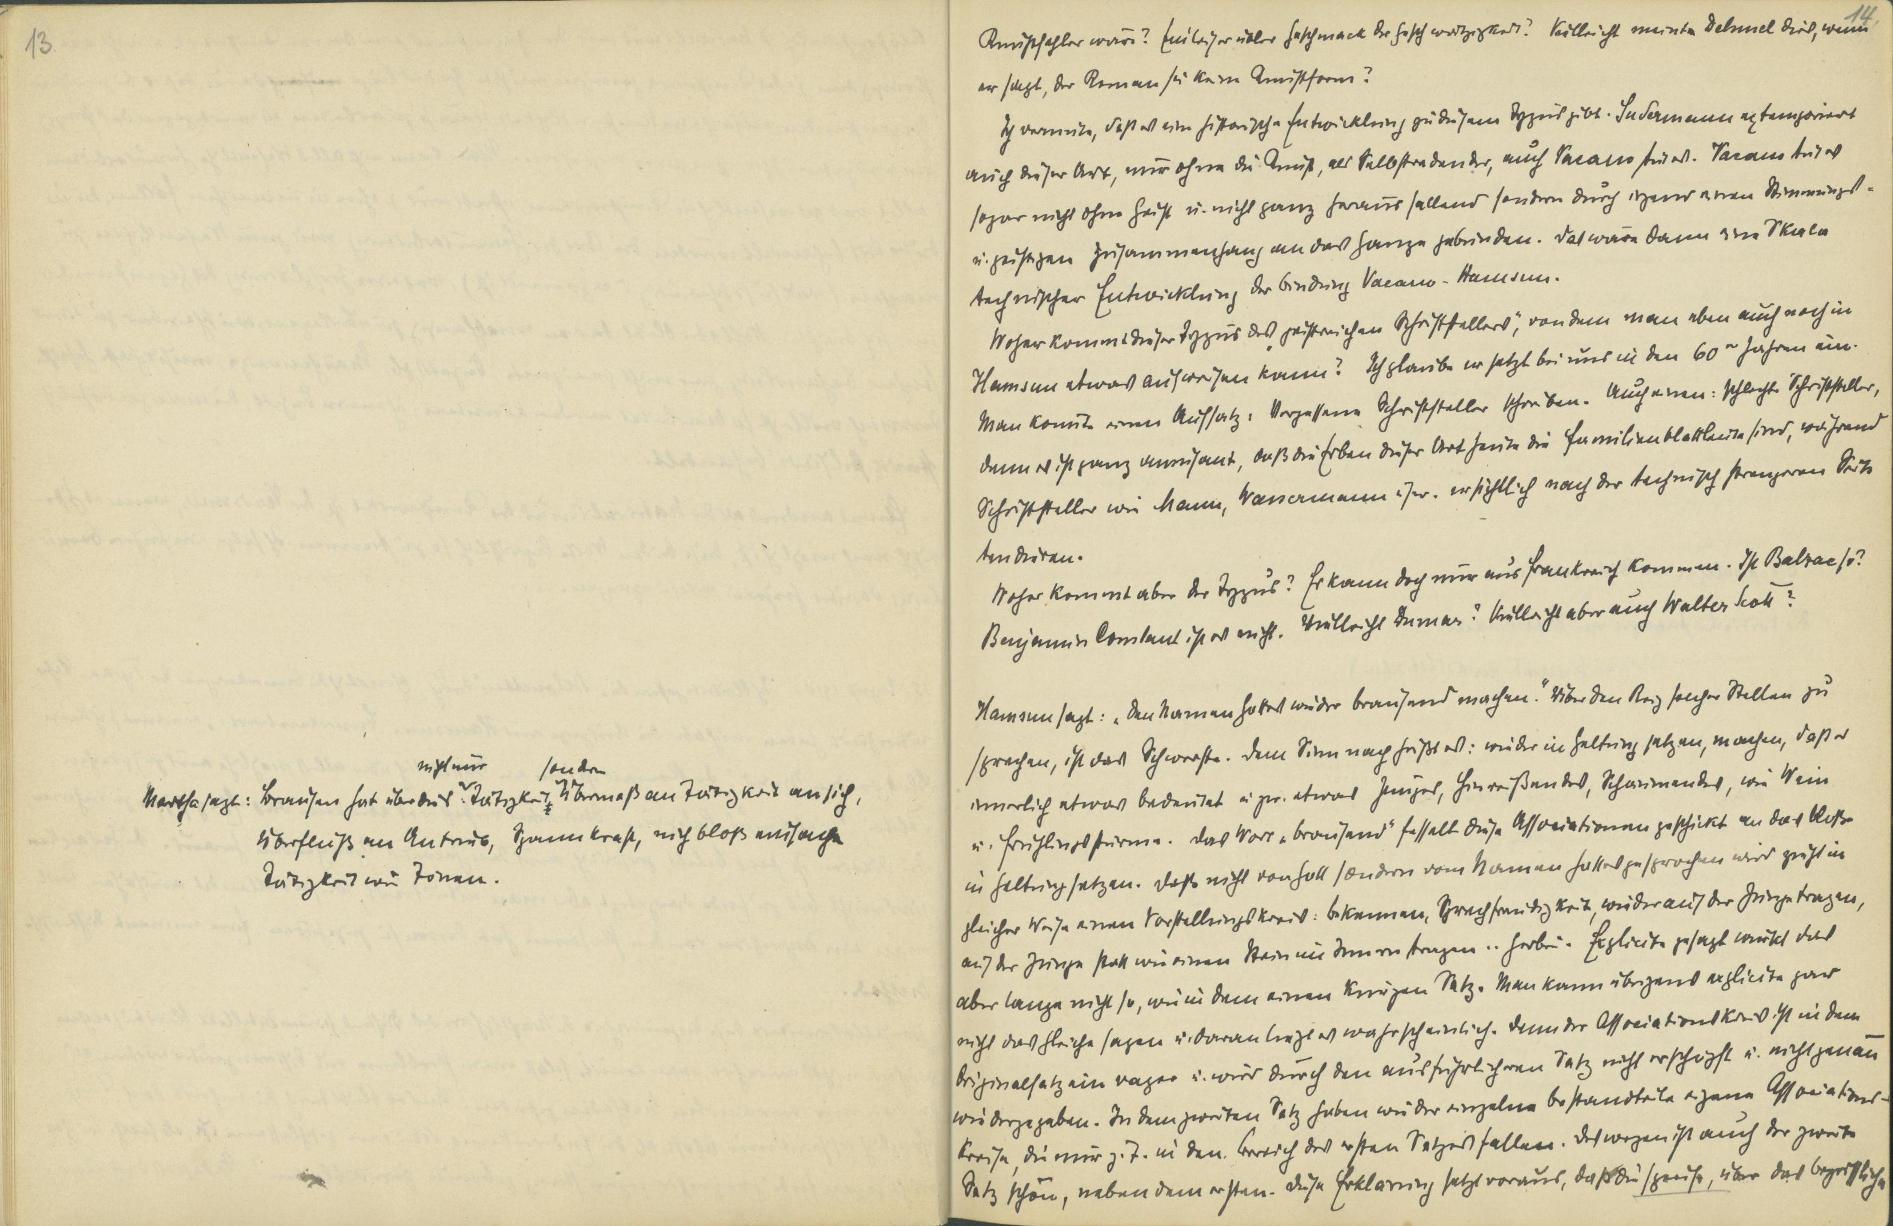 13
nicht nur sondern
Martha sagt: Brausen hat überdies Tätigkeit, Übermaß an Tätigkeit an sich,
Überfluß an Antrieb, Spannkraft, nich bloß einfache
Tätigkeit wie Tönen.
14
Kunstfehler wäre? Ein leiser übler Geschmack der Geschwätzigkeit? Vielleicht meinte Dehmel dies, wenn
er sagt, der Roman sei keine Kunstform?
Ich vermute, daß es eine historische Entwicklung zu diesem Typus gibt. Sudermann extemporiert
auch dieser Art, nur ohne die Kunst, als Selbstredender, auch Vacano tut es. Vacano tut es
sogar nicht ohne Geist u. nicht ganz herausfallend sondern durch irgend einen Stimmungs-
u. geistigen Zusammenhang an das Ganze gebunden. Das wäre dann eine Skala
technischer Entwicklung der Bindung Vacano - Hamsun.
Woher kommt dieser Typus des „geistreichen Schriftstellers", von dem man eben auch noch in
Hamsun etwas aufweisen kann? Ich glaube er setzt bei uns in den 60er Jahren ein.
Man könnte einen Aufsatz: Vergessene Schriftsteller schreiben. Auch einen: schlechte Schriftsteller,
denn es ist ganz amusant, daß die Erben dieser Art heute die Familienblattleute sind, während
Schriftsteller wie Mann, Wassermann usw. ersichtlich nach der technisch strengeren Seite
tendieren.
Woher kommt aber der Typus? Er kann doch nur aus Frankreich kommen. Ist Balzac so?
Benjamin Constant ist es nicht. Vielleicht Dumas? Vielleicht aber auch Walter Scott?
Hamsun sagt: „den Namen Gottes wieder brausend machen." Über den Reiz solcher Stellen zu
sprechen, ist das Schwerste. Dem Sinn nach heißt es: wieder in Geltung setzen, machen, daß er
innerlich etwas bedeutet u zw. etwas Junges, Hinreißendes, Schäumendes, wie Wein
u. Frühlingsstürme. Das Wort „brausend" fesselt diese Associationen geschickt an das bloße
in Geltung setzen. Daß nicht von Gott sondern vom Namen Gottes gesprochen wird zieht in
gleicher Weise einen Vorstellungskreis: bekennen, Sprachfreudigkeit, wieder auf der Zunge tragen,
auf der Zunge statt wie einen Stein im Innern tragen .. herbei. Explicite gesagt wirkt das
aber lange nicht so, wie in dem einen knappen Satz. Man kann übrigens explicite gar
nicht das Gleiche sagen u. daran liegt es wahrscheinlich. Denn der Associationskreis ist in dem
Originalsatz ein vager u. wird durch den ausführlicheren Satz nicht erschöpft u. nicht genau
wiedergegeben. In dem zweiten Satz haben wieder einzelne Bestandteile eigene Associations-
kreise, die nur z. T. in den Bereich des ersten Satzes fallen. Deswegen ist auch der zweite
Satz schön, neben dem ersten. Diese Erklärung setzt voraus, daß die spezif., über das begriffliche